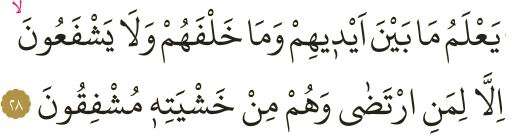 يَعْلَمُ مَا بَيْنَ اَيْدٖيهِمْ وَمَا خَلْفَهُمْ وَلَا يَشْفَعُونَۙ
اِلَّا لِمَنِ ارْتَضٰى وَهُمْ مِنْ خَشْيَتِهٖ مُشْفِقُونَ ٢٨